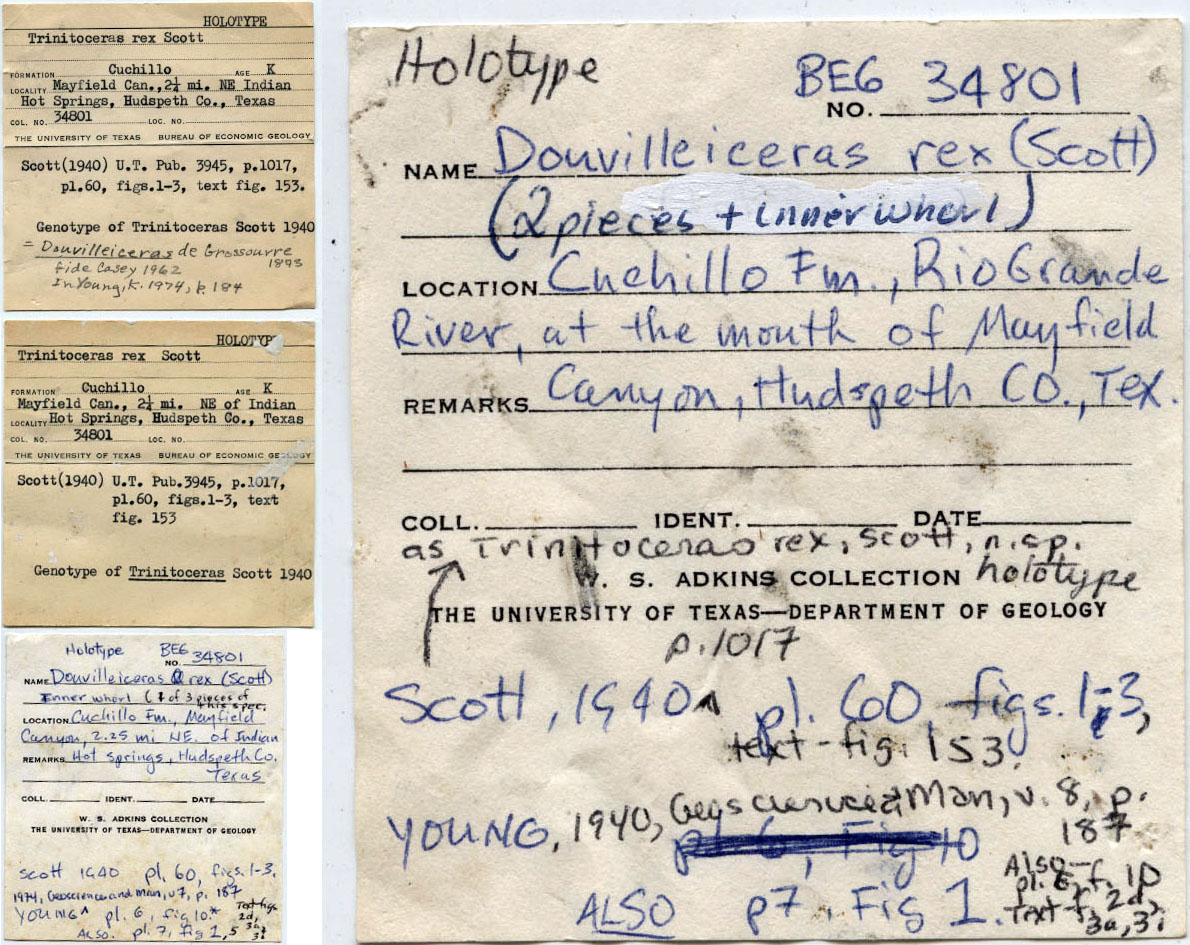 HOLOTYPE
Trinitoceras rex Scott
FORMATION Cuchillo AGE K
LOCALITY Mayfield Can., 2¼ mi. NE Indian
Hot Springs, Hudspeth Co., Texas
COL. NO. 34801 LOC. NO.
THE UNIVERSITY OF TEXAS BUREAU OF ECONOMIC GEOLOGY
Scott(1940) U.T. Pub. 3945, p.1017,
pl.60, figs.1-3, text fig. 153.
Genotype of Trinitoceras Scott 1940
= Douvilleiceras de Grossouvre
1893
fide Casey 1962
In Young, K. 1974, p. 184
HOLOTYPE
Trinitoceras rex Scott
FORMATION Cuchillo AGE K
Mayfield Can., 2¼ mi. NE of Indian
LOCALITY Hot Springs, Hudspeth Co., Texas
COL. NO. 34801 LOC. NO.
THE UNIVERSITY OF TEXAS BUREAU OF ECONOMIC GEOLOGY
Scott(1940) U.T. Pub.3945, p.1017,
pl.60, figs.1-3, text
fig. 153
Genotype of Trinitoceras Scott 1940
Holotype BEG
NO. 34801
NAME Douvilleiceras rex (Scott)
Inner whorl (1 of 3 pieces of
this spec.
LOCATION Cuchillo Fm., Mayfield
Canyon, 2.25 mi NE. of Indian
REMARKS Hot Springs, Hudspeth Co.
Texas
COLL. IDENT. DATE
W. S. ADKINS COLLECTION
THE UNIVERSITY OF TEXAS—DEPARTMENT OF GEOLOGY
Scott 1940 pl. 60, figs. 1-3,
1974, Geoscience and Man, v7, p. 187
YOUNG ^ pl. 6, fig 10.* Text figs
2d,
ALSO. pl. 7, fig 1, 5 3a,
3i
Holotype BEG 34801
NO.
NAME Douvilleiceras rex (Scott)
(2 pieces + inner whorl)
LOCATION Cuchillo Fm., Rio Grande
River, at the mouth of Mayfield
REMARKS Canyon, Hudspeth Co., Tex.
COLL. IDENT. DATE
as Trinitoceras rex, Scott, n.sp.
W. S. ADKINS COLLECTION holotype
THE UNIVERSITY OF TEXAS—DEPARTMENT OF GEOLOGY
p.1017
Scott, 1940 ^ pl. 60, figs. 1-3,
text-fig. 153.
YOUNG, 1940, Geoscience & Man, v. 8, p.
187
pl 6, Fig 10
Also-
pl. 6, f. 10
ALSO p7, Fig 1. text-f. 2d,
3a, 3i